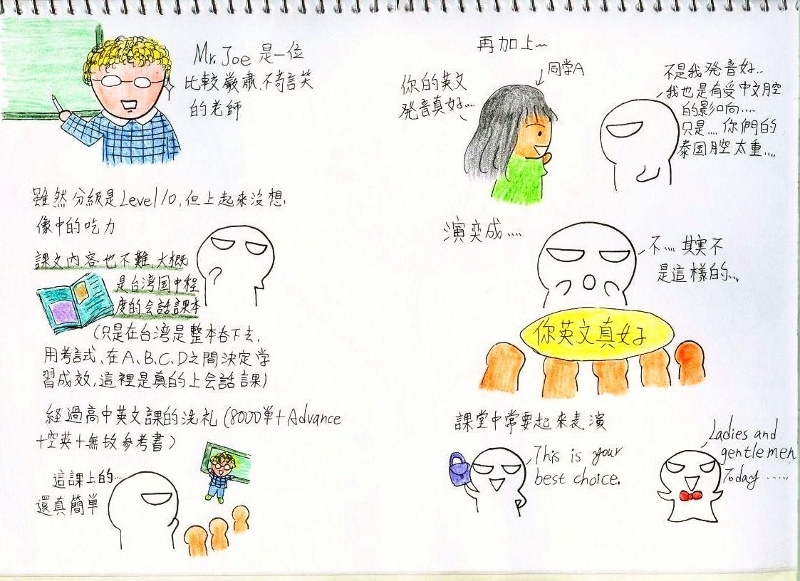 Mr. Joe 是一位
比較嚴肅、不苟言笑
的老師
雖然分級是Level 10,但上起來沒想
像中的吃力
課文內容也不難,大概
是台湾国中程
度的会話課本
(只是在台湾是整本吞下去,
用考試,在A、B、C、D之間決定学
習成效,這裡是真的上会話課)
經過高中英文課的洗礼(8000單+Advance
+空英+無敌参考書)
這課上的…
還真簡單
再加上~
同学A
你的英文
発音真好…
不是我発音好..
我也是有受中文腔
的影响….
只是….你們的
泰国腔太重….
演変成….
不….其実不
是這樣的…
你英文真好
課堂中常要起來表演
This is your
best choice.
Ladies and
gentlemen
Today .....